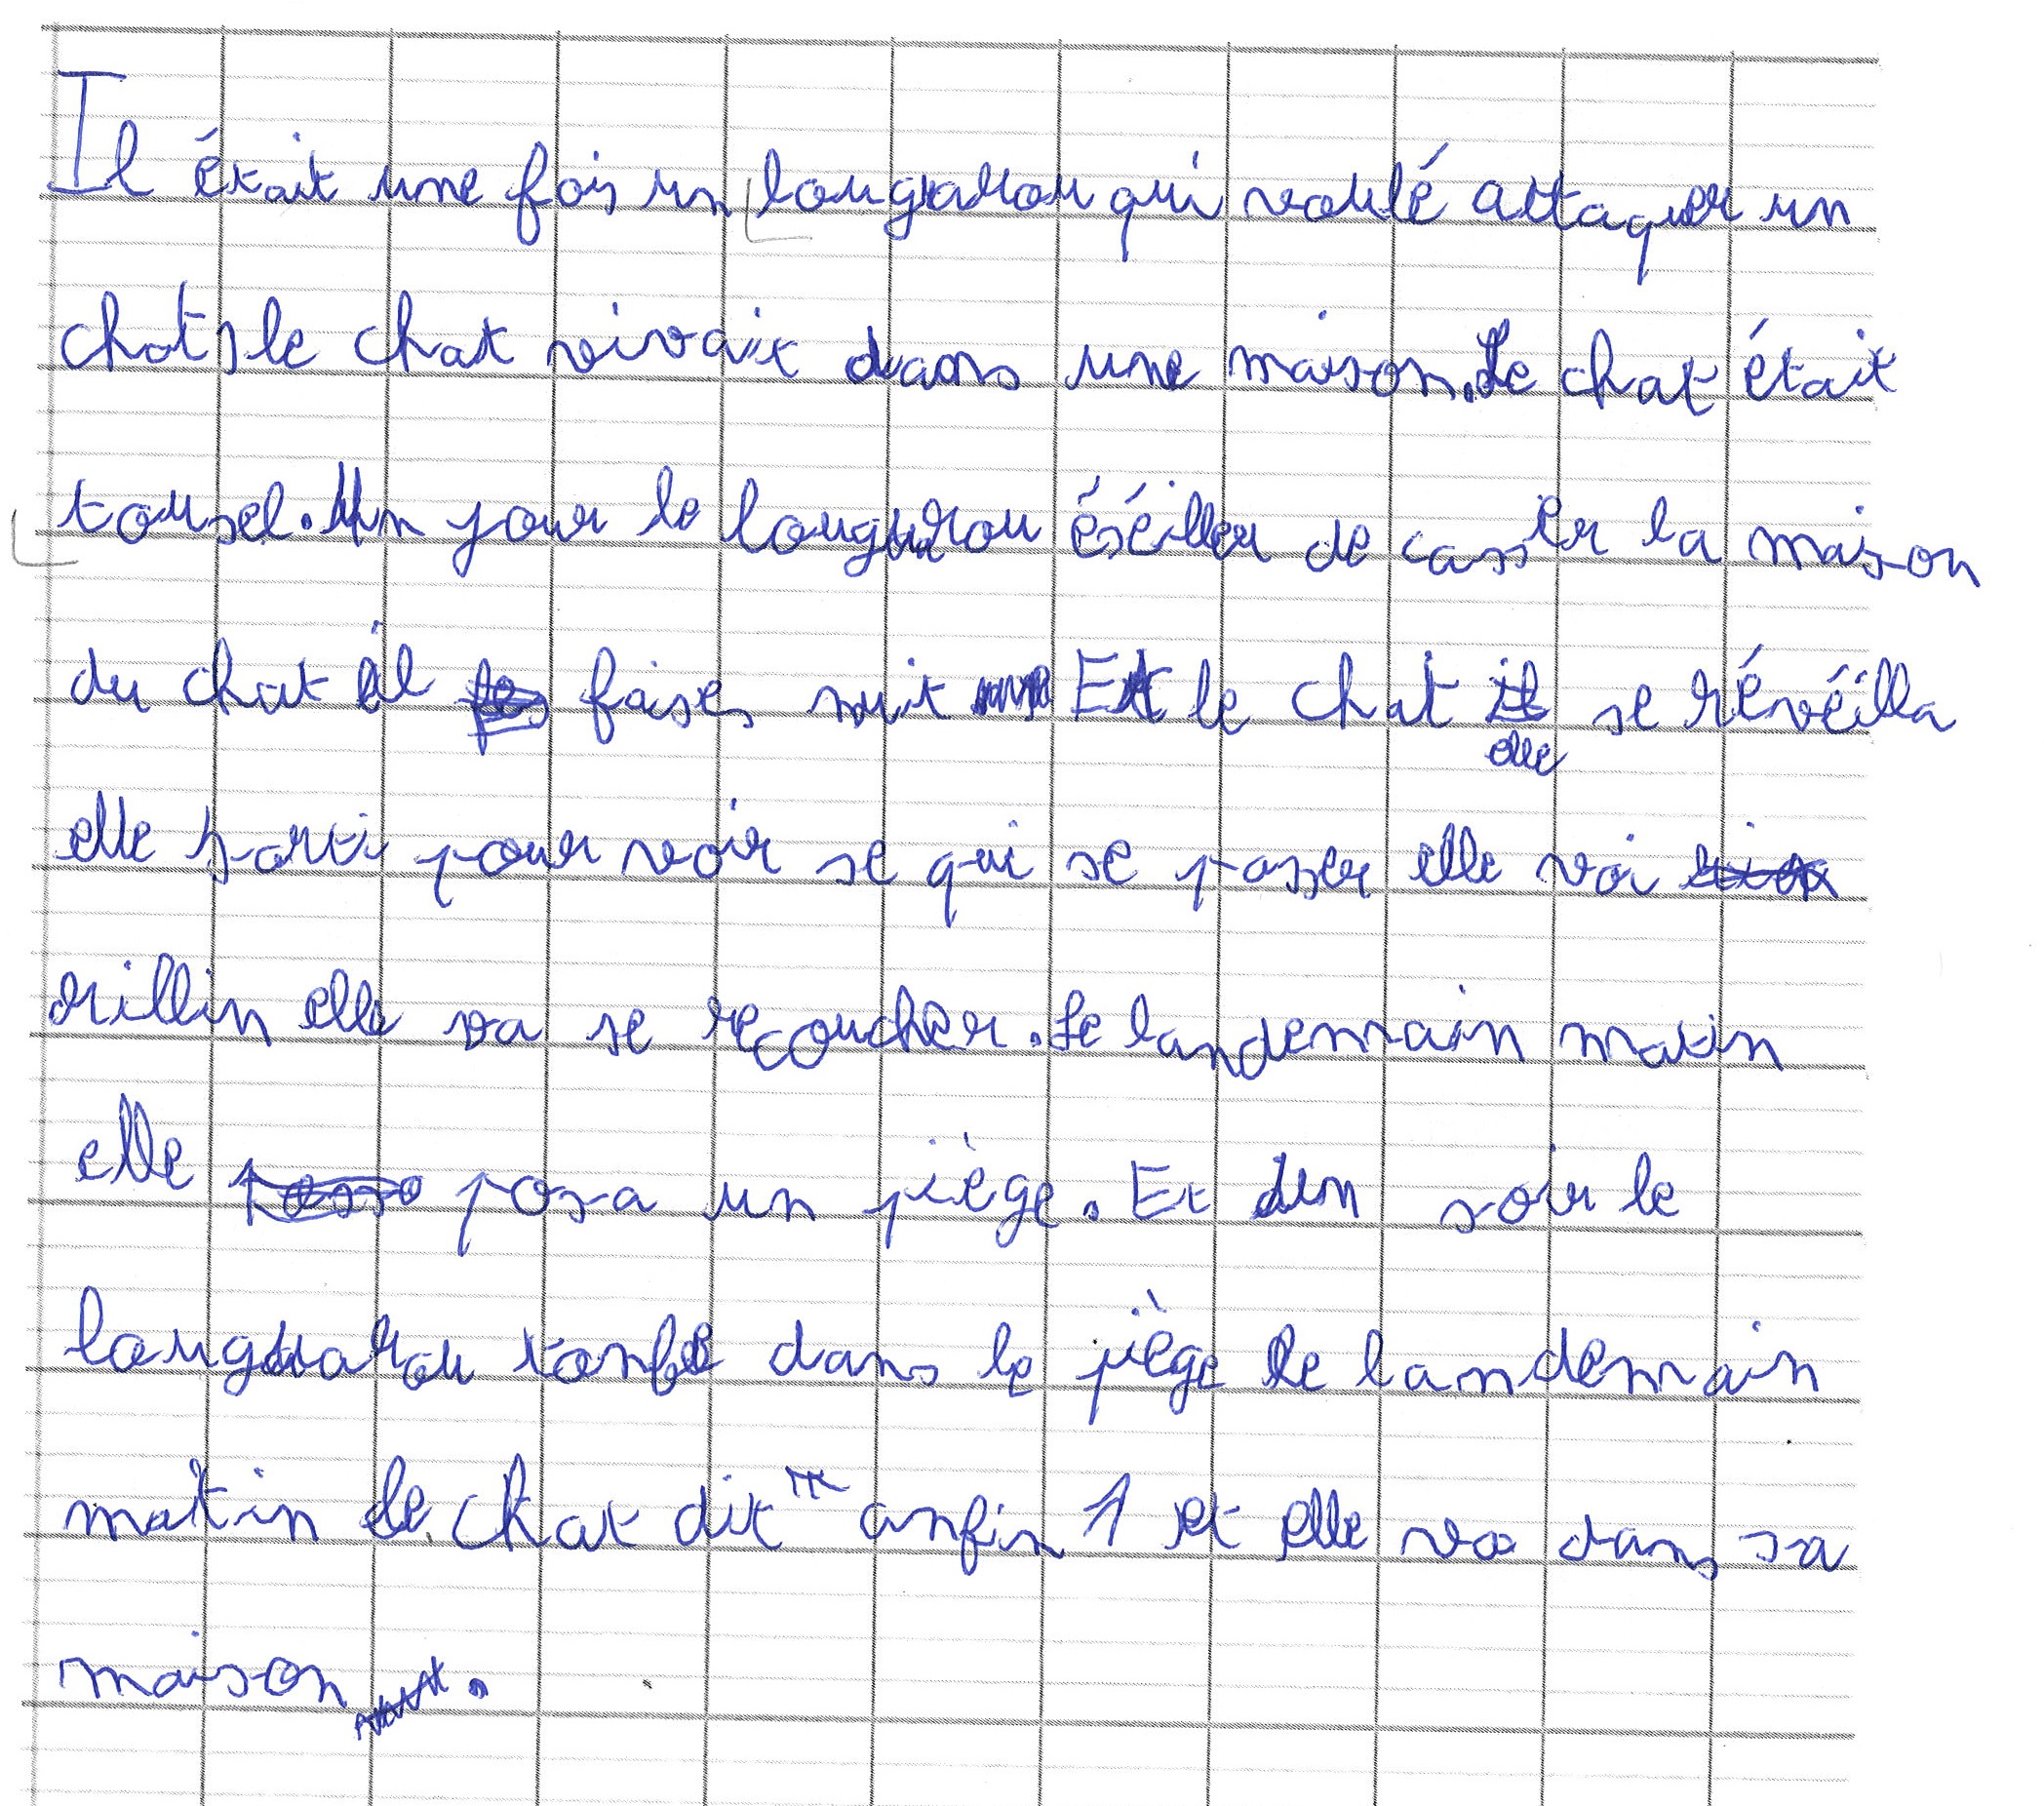 Il était une fois un lougarou qui voulé attaquer un
chat, le chat vivait dans une maison. Le chat était
tousel. Un jour le lougarou éséiller de casser la maison
du chat il faises nuit Et le chat elle se révéilla
elle sorti pour voir se qui se passer elle voi
rillin elle va se recoucher. Le landemain matin
elle posa un piège. Et un soir le
lougarou tonbe dans le piège le landemain
matin le chat dit anfin ! et elle va dans sa
maison.